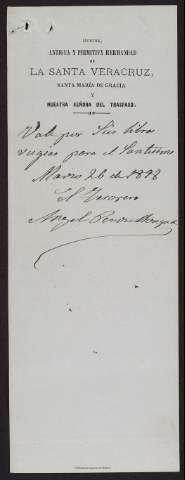 ANTIGUA Y PRIMITIVA HERMANDAD
DE
LA SANTA VERACRUZ,
SANTA MARÍA DE GRACIA
Y
NUESTRA SEÑORA DEL TRASPASO.
Vale por Seis libras
para el Santísimo
Marzo 26 de 1898
El Tesorero
Angel Perez